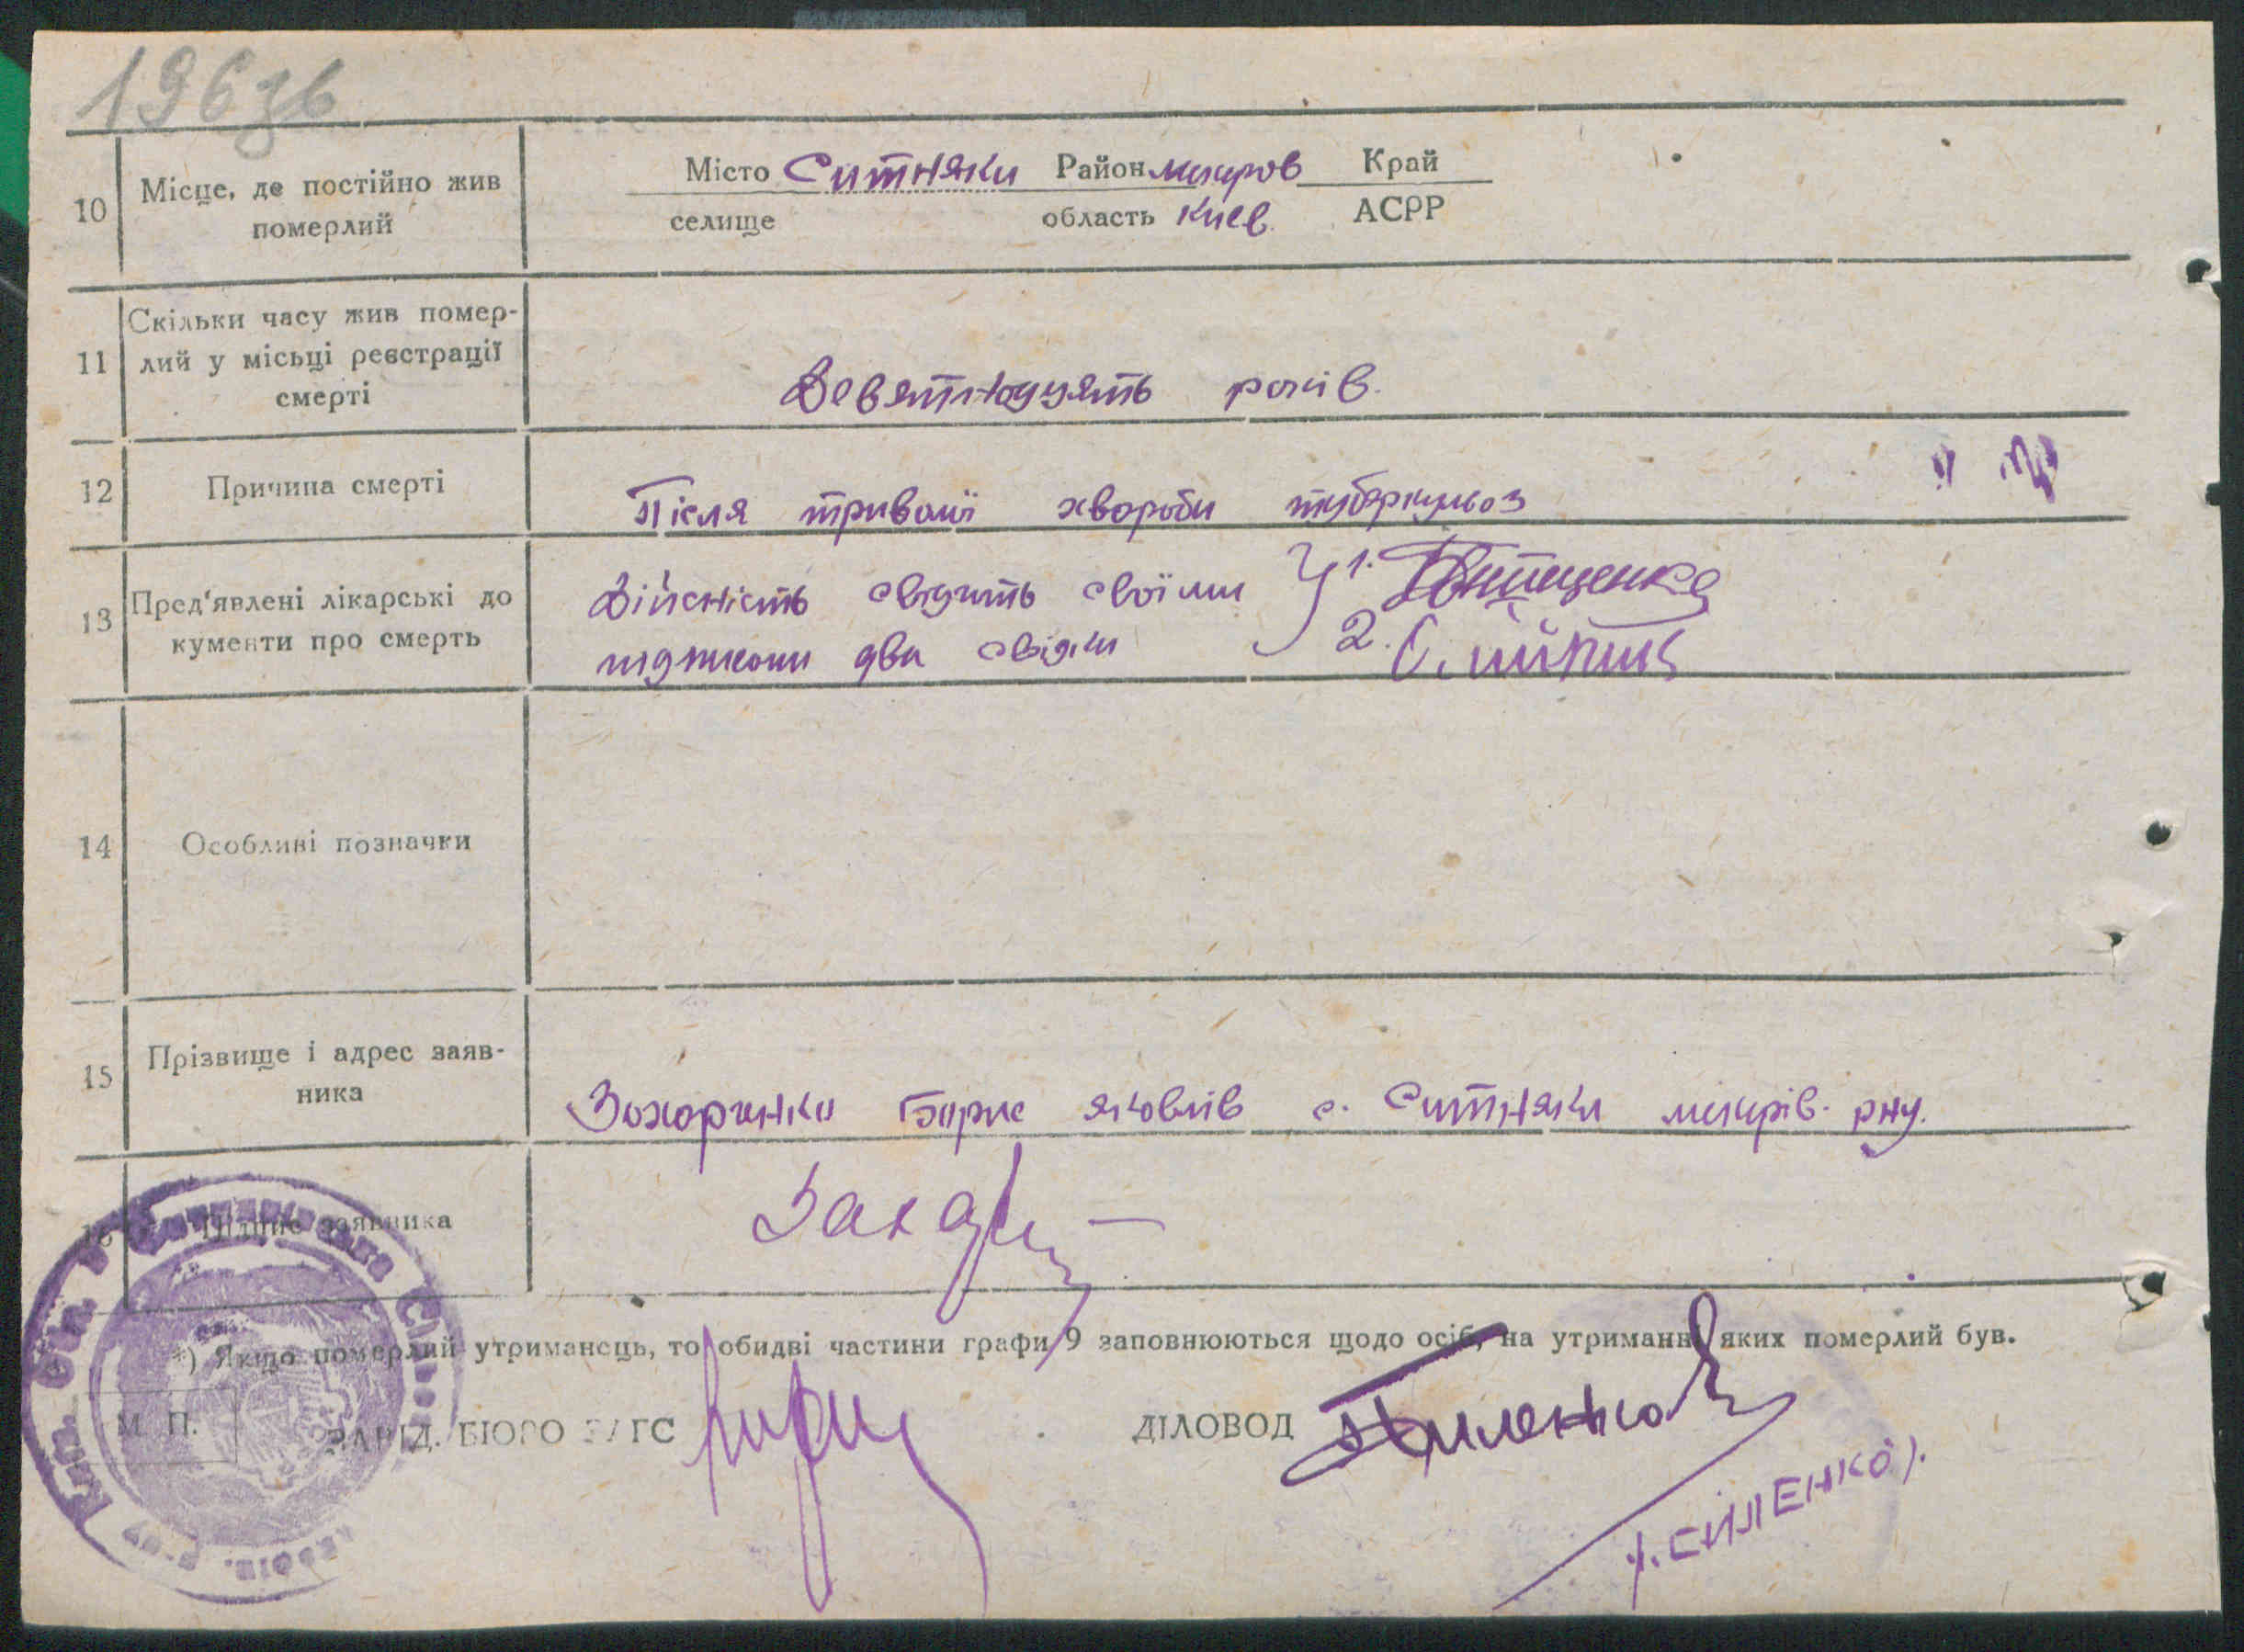 196зв
10 Місце, де постійно жив померлий
Місто Ситняки Район макаров Край
селище область Киев. АСРР
11 Скільки часу жив помер-
лий у місьці реєстрації
смерті
Девятнадцять років.
12 Причина смерті
Після тривалої хвороби туберкульоз
13 Пред'явлені лікарські до
кументи про смерть
Дійсність свідчить своїми } 1.
підписами два свідки 2.
14 Особливі позначки
15 Прізвище і адрес заяв-
ника
Захорченко Борис яковлів с. Ситняки макарів. рну.
16 Підпис заявника
Захар
*) Якщо померлий утриманець, то обидві частини графи 9 заповнюються щодо осіб, на утриманні яких померлий був.
М. П. ЗАВІД. БЮРО ЗАГС
ДІЛОВОД
СИЛЕНКО).